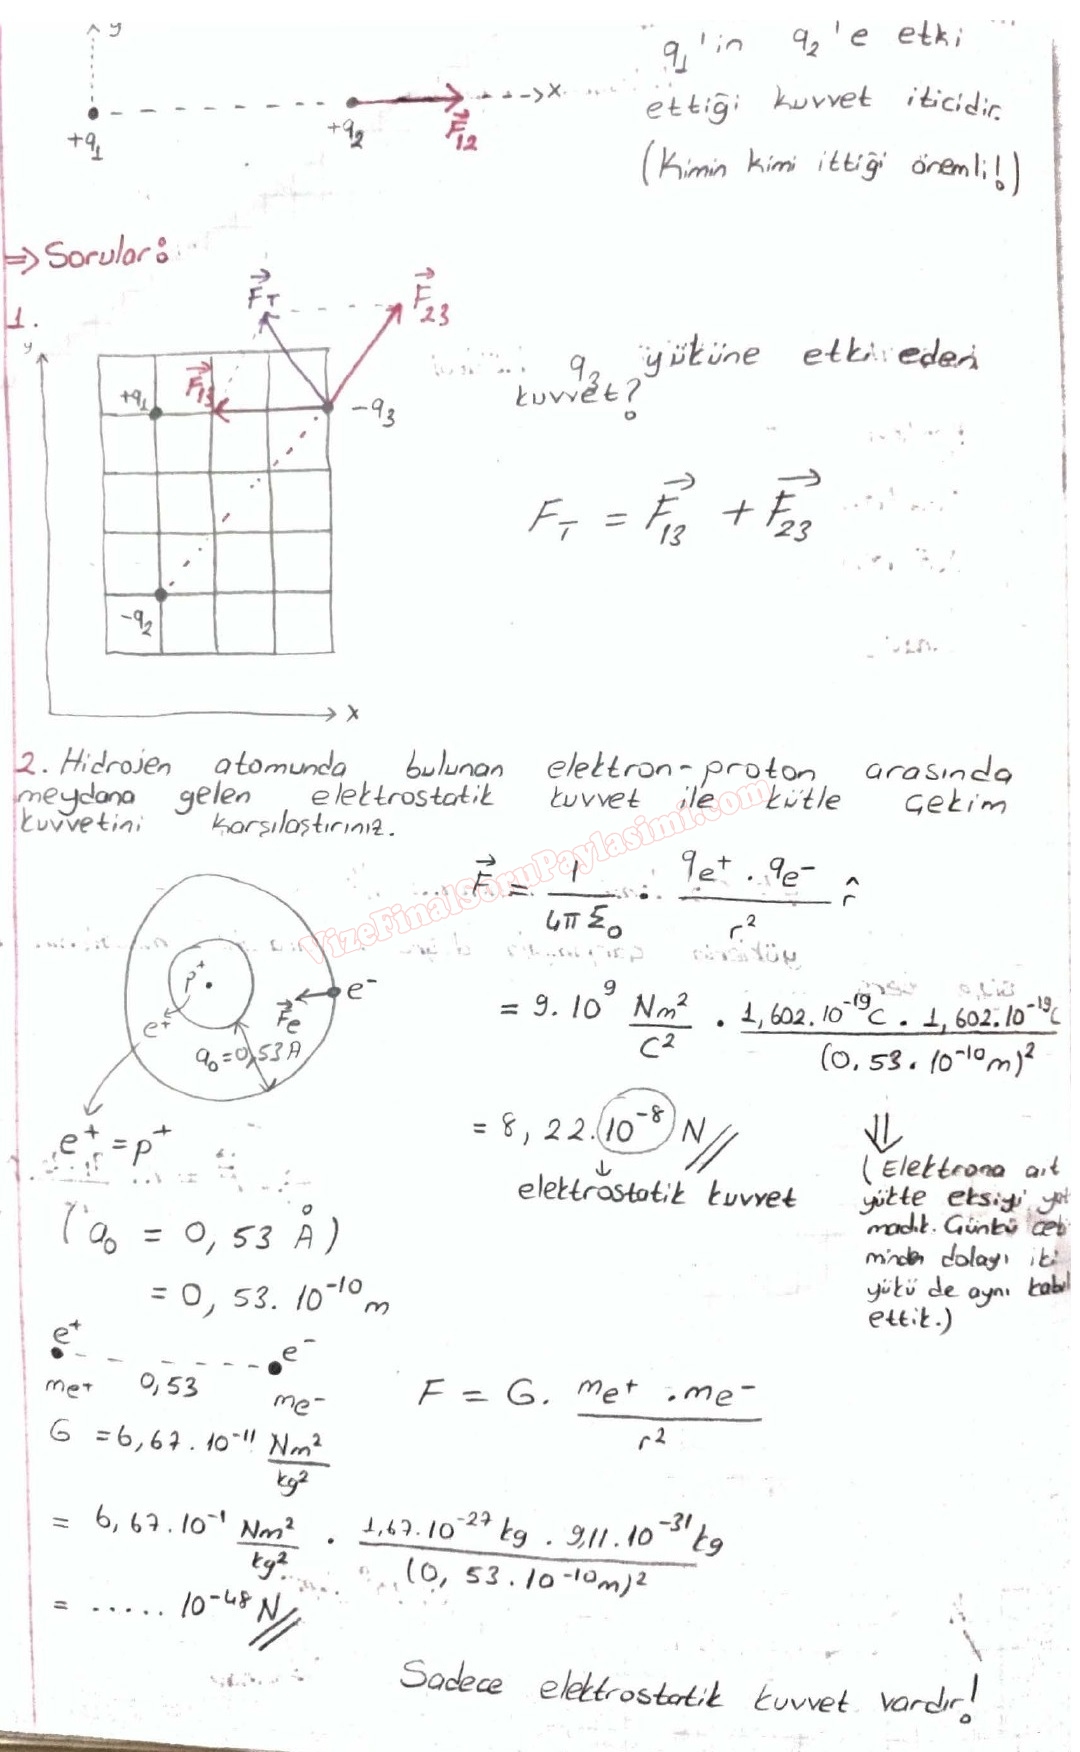 y
q₁'in q₂'e etki
+q₁
+q₂
F₁₂
x
ettiği kuvvet iticidir.
(Kimin kimi ittiği önemli!)
⇒ Sorular:
1.
y
F_T
F₂₃
F₁₃
+q₁
-q₃
-q₂
x
q₃ yüküne etki eden
kuvvet?
F_T = F₁₃ + F₂₃
2. Hidrojen atomunda bulunan elektron-proton arasında
meydana gelen elektrostatik kuvvet ile kütle çekim
kuvvetini karşılaştırınız.
VizeFinalSoruPaylasimi.com
F = 1/4πε₀ . qe⁺ . qe⁻/r² r̂
p⁺
e⁺
Fe
e⁻
a₀=0,53Å
= 9.10⁹ Nm²/C² . 1,602.10⁻¹⁹C . 1,602.10⁻¹⁹C/(0,53.10⁻¹⁰m)²
e⁺ = p⁺
= 8,22.10⁻⁸ N
elektrostatik kuvvet
(a₀ = 0,53 Å)
= 0,53.10⁻¹⁰ m
⇓
(Elektrona ait
yükte eksiyi yaz
madık. Çünkü
dolayı iki
yükü de aynı
ettik.)
e⁺
e⁻
me⁺
0,53
me⁻
F = G. me⁺ . me⁻/r²
G = 6,67.10⁻¹¹ Nm²/kg²
= 6,67.10⁻¹ Nm²/kg² . 1,67.10⁻²⁷ kg . 9,11.10⁻³¹ kg/(0,53.10⁻¹⁰m)²
= ..... 10⁻⁴⁸ N
Sadece elektrostatik kuvvet vardır!